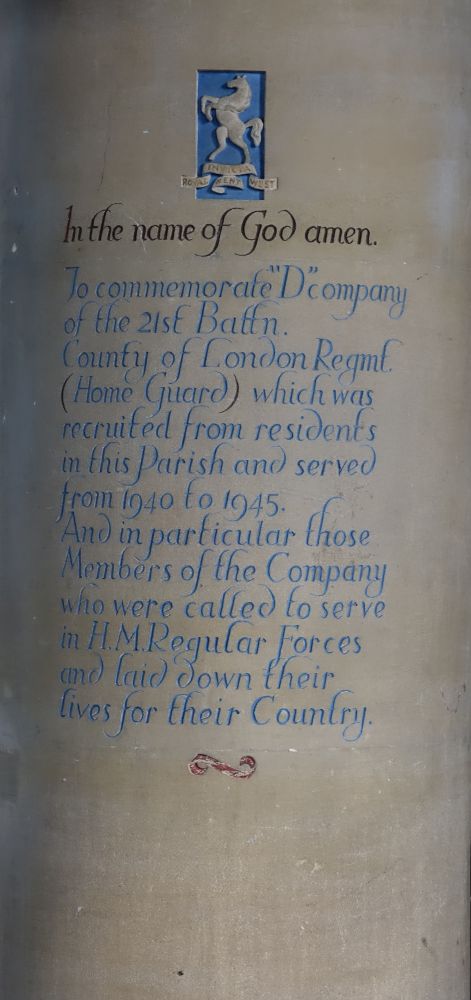 INVICTA
ROYAL KENT WEST
In the name of God amen.
To commemorate "D" company
of the 21st Battn.
County of London Regmt.
(Home Guard) which was
recruited from residents
in this Parish and served
from 1940 to 1945.
And in particular those
Members of the Company
who were called to serve
in H.M. Regular Forces
and laid down their
lives for their Country.